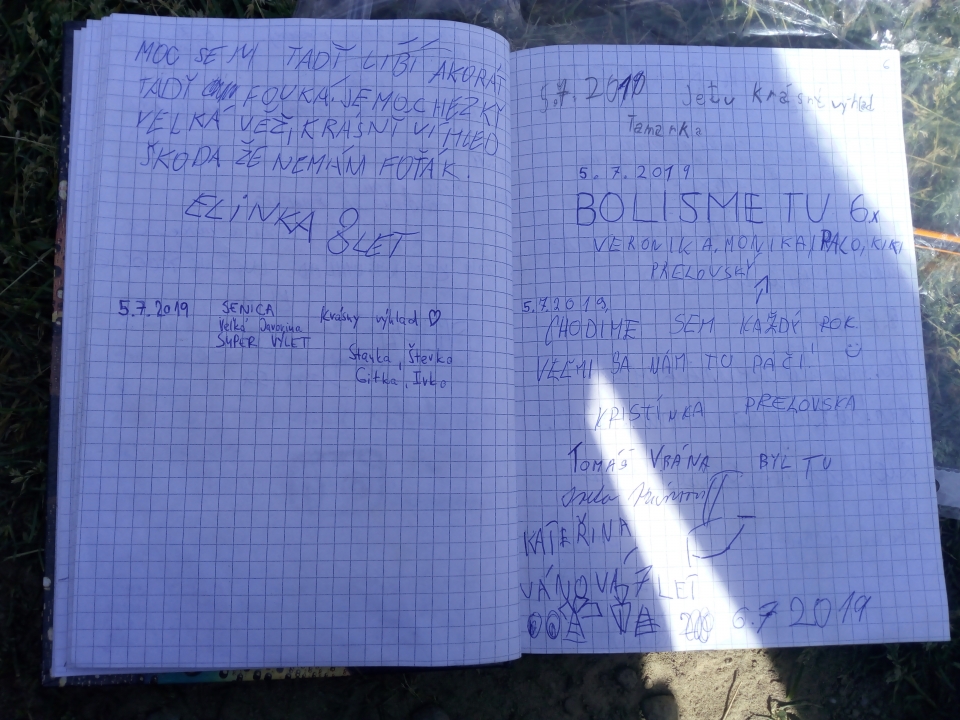 MOC SE MI TADY LÍBÍ AKORÁT
TADY FOUKÁ. JE MOC HEZKÝ
VELKÁ VĚŽ, KRÁSNÍ VÍHLED
ŠKODA ŽE NEMÁM FOŤÁK.
ELINKA 8 LET
5.7.2019 SENICA Krásny výhlad ♡
Veľká Javorina
SUPER VÝLET
Stanka, Števko
Gitka, Ivko
5.7.2019 Je tu krásny výhlad
Tamarka
5.7.2019
BOLI SME TU 6x
VERONIKA, MONIKA, PALO, KIKI
PRELOVSKÝ
5.7.2019,
CHODIME SEM KAŽDÝ ROK
VEĽMI SA NÁM TU PAČI!
KRISTÍNKA PRELOVSKA
TOMÁŠ VRÁNA BYL TU
KATEŘINA
VÁNOVA 7 LET
6.7 2019